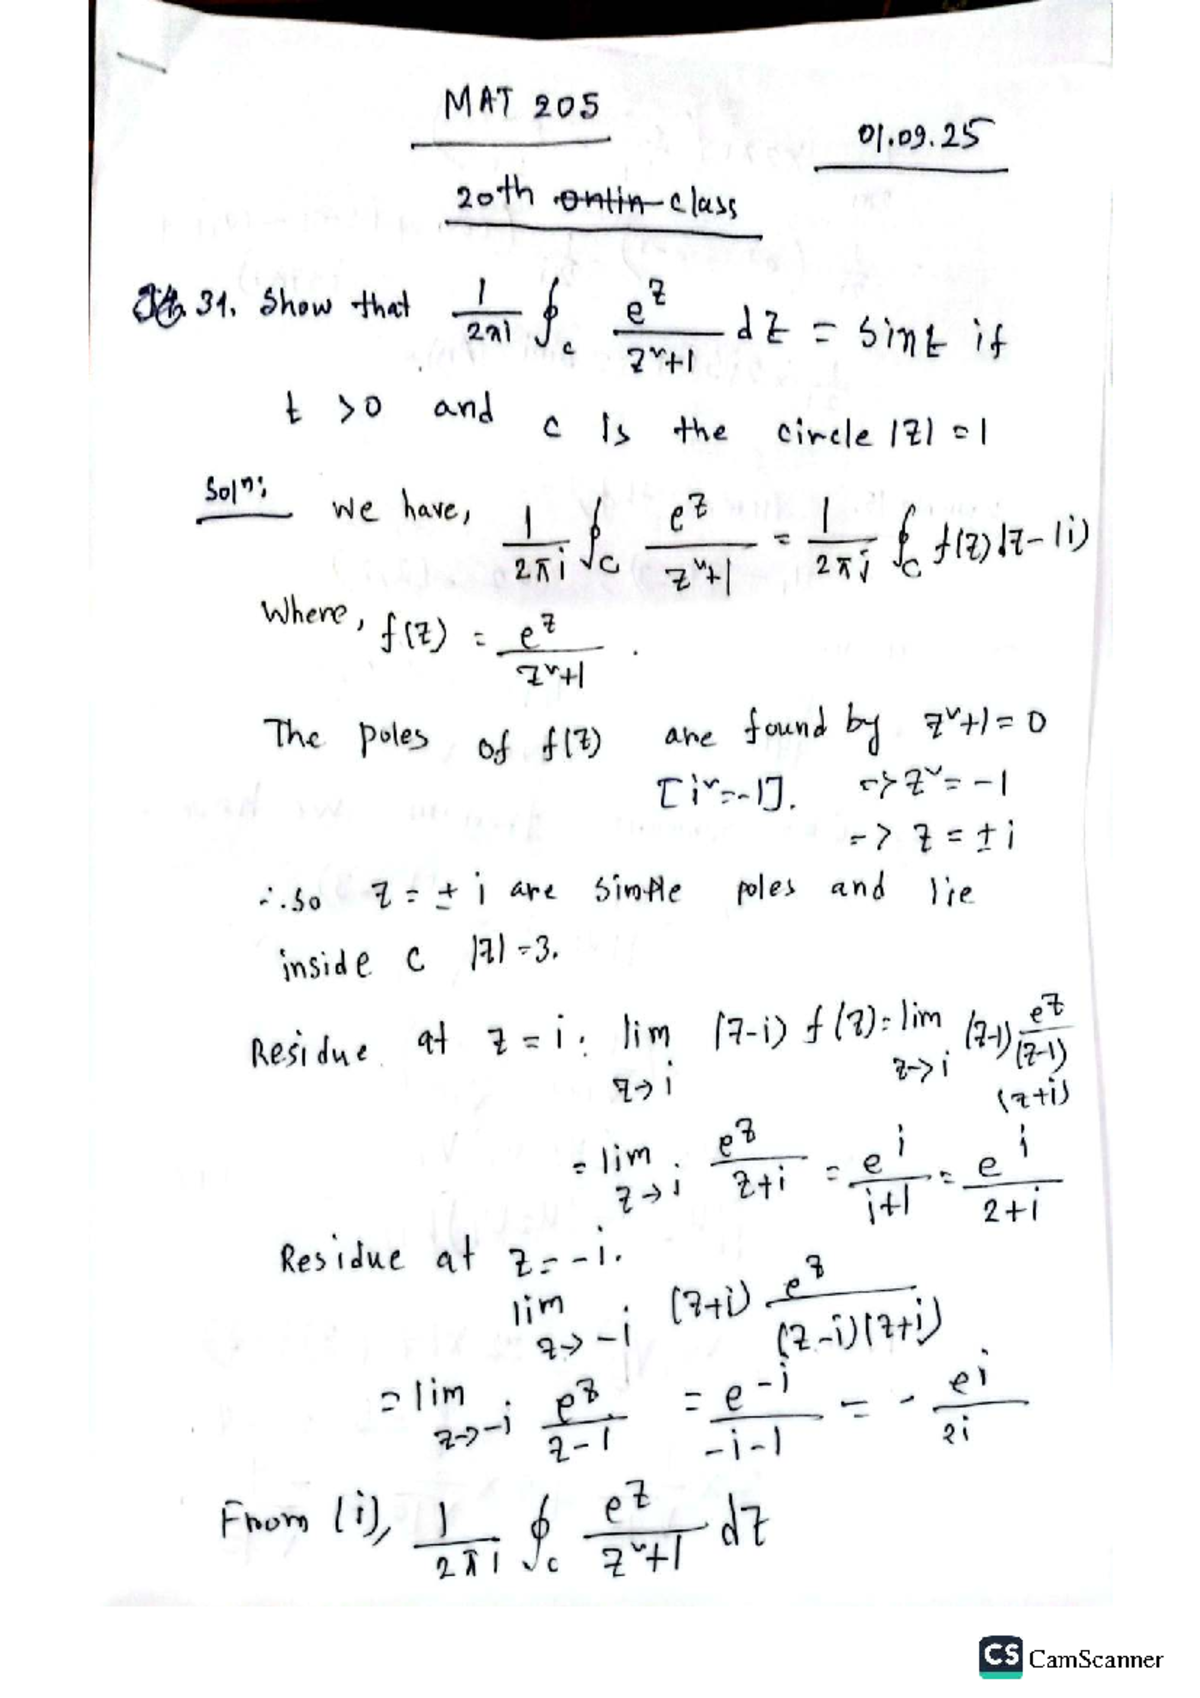 MAT 205
01.09.25
20th ontin class
31. Show that 1/2πi ∮c e^z/z^2+1 dz = sint if
t >0 and c is the circle |z| = 1
Soln: We have, 1/2πi ∮c e^z/z^2+1 = 1/2πi ∮c f(z)dz-(i)
Where, f(z) = e^z/z^2+1 .
The poles of f(z) are found by z^2+1=0
[i^2=-1]. => z^2 = -1
=> z = ±i
∴ so z = ± i are simple poles and lie
inside c |z| =3.
Residue at z = i: lim z→i (z-i) f(z) = lim z→i (z-1) e^z/(z-1)(z+i)
= lim z→i e^z/z+i = e^i/i+1 = e^i/2+i
Residue at z=-i.
lim z→-i (z+i) e^z/(z-i)(z+i)
= lim z→-i e^z/z-1 = e^-i/-i-1 = - ei/2i
From (i), 1/2πi ∮c e^z/z^2+1 dz
CS CamScanner